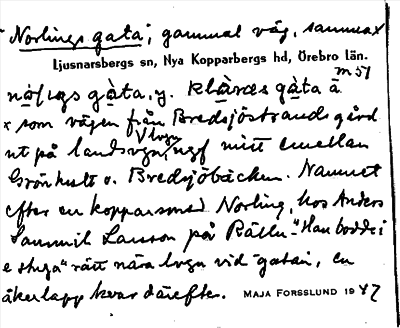 "Norlings gata", gammal väg, samma x
Ljusnarsbergs sn, Nya Kopparbergs hd, Örebro län.
m 51
gàta, y. gàta ä
x som vägen från Bredsjöstrands gård
V lvgn
ut på landsvgn, ungf mitt emellan
Grönhult o. Bredsjöbäcken. Namnet
efter en kopparsmed Norling, hos Anders
Samuel Larsson på Rälln. "Han bodde i
e stuga" rätt nära lvgn vid gatan, en
åkerlapp kvar därefter. MAJA FORSSLUND 1947